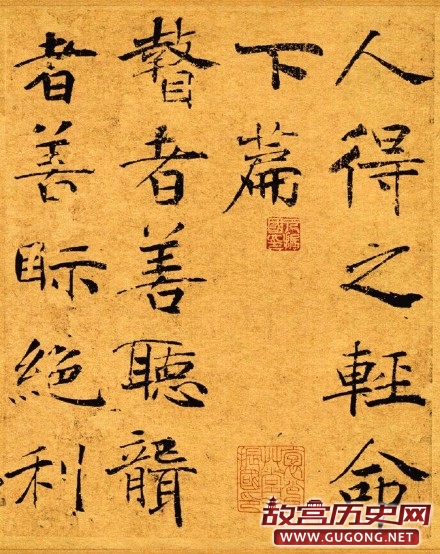 人得之輕命
下篇
瞽者善聽聾
者善眎絶利
故宫历史网
WWW.GUGONG.NET